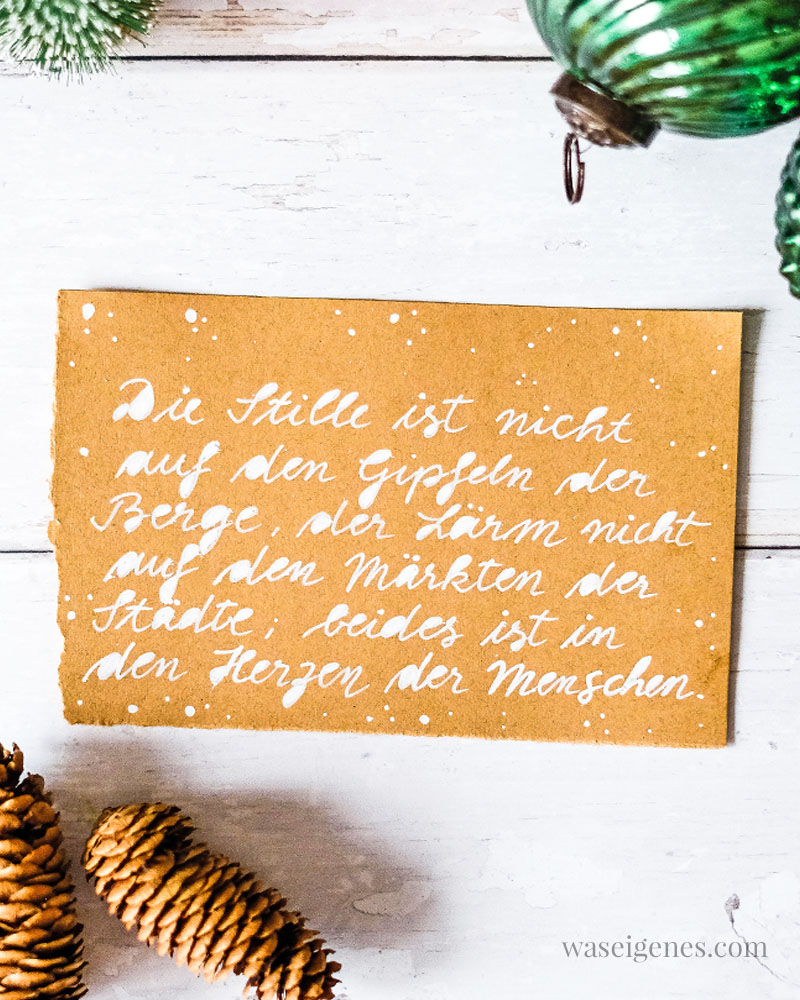 Die Stille ist nicht
auf den Gipfeln der
Berge, der Lärm nicht
auf den Märkten der
Städte; beides ist in
den Herzen der Menschen.
waseigenes.com